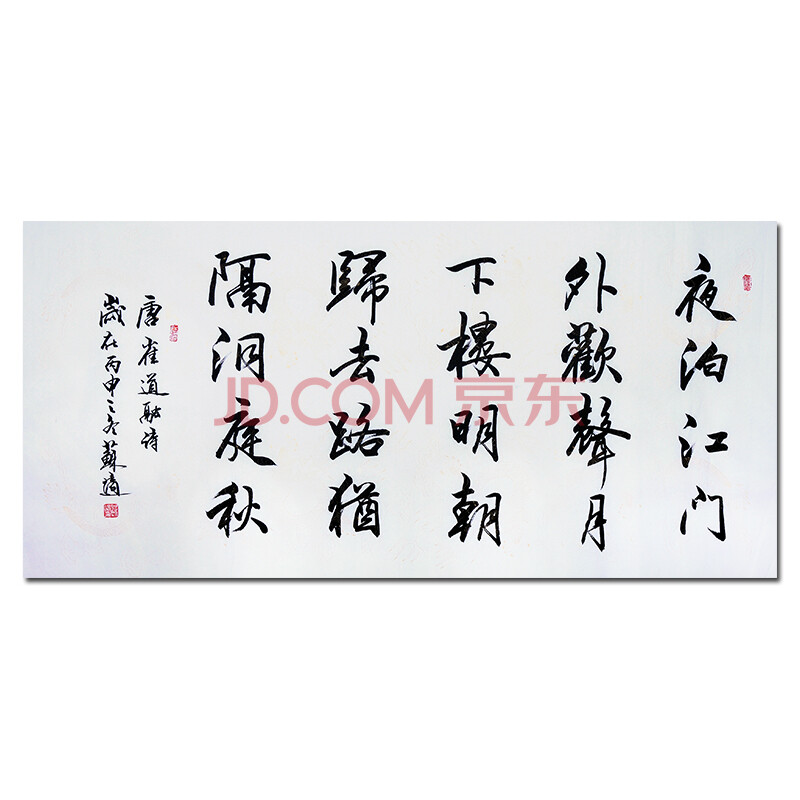 夜泊江门
外歡聲月
下樓明朝
歸去路猶
隔洞庭秋
唐崔道融诗
歲在丙申之冬蘇適
JD.COM 京东